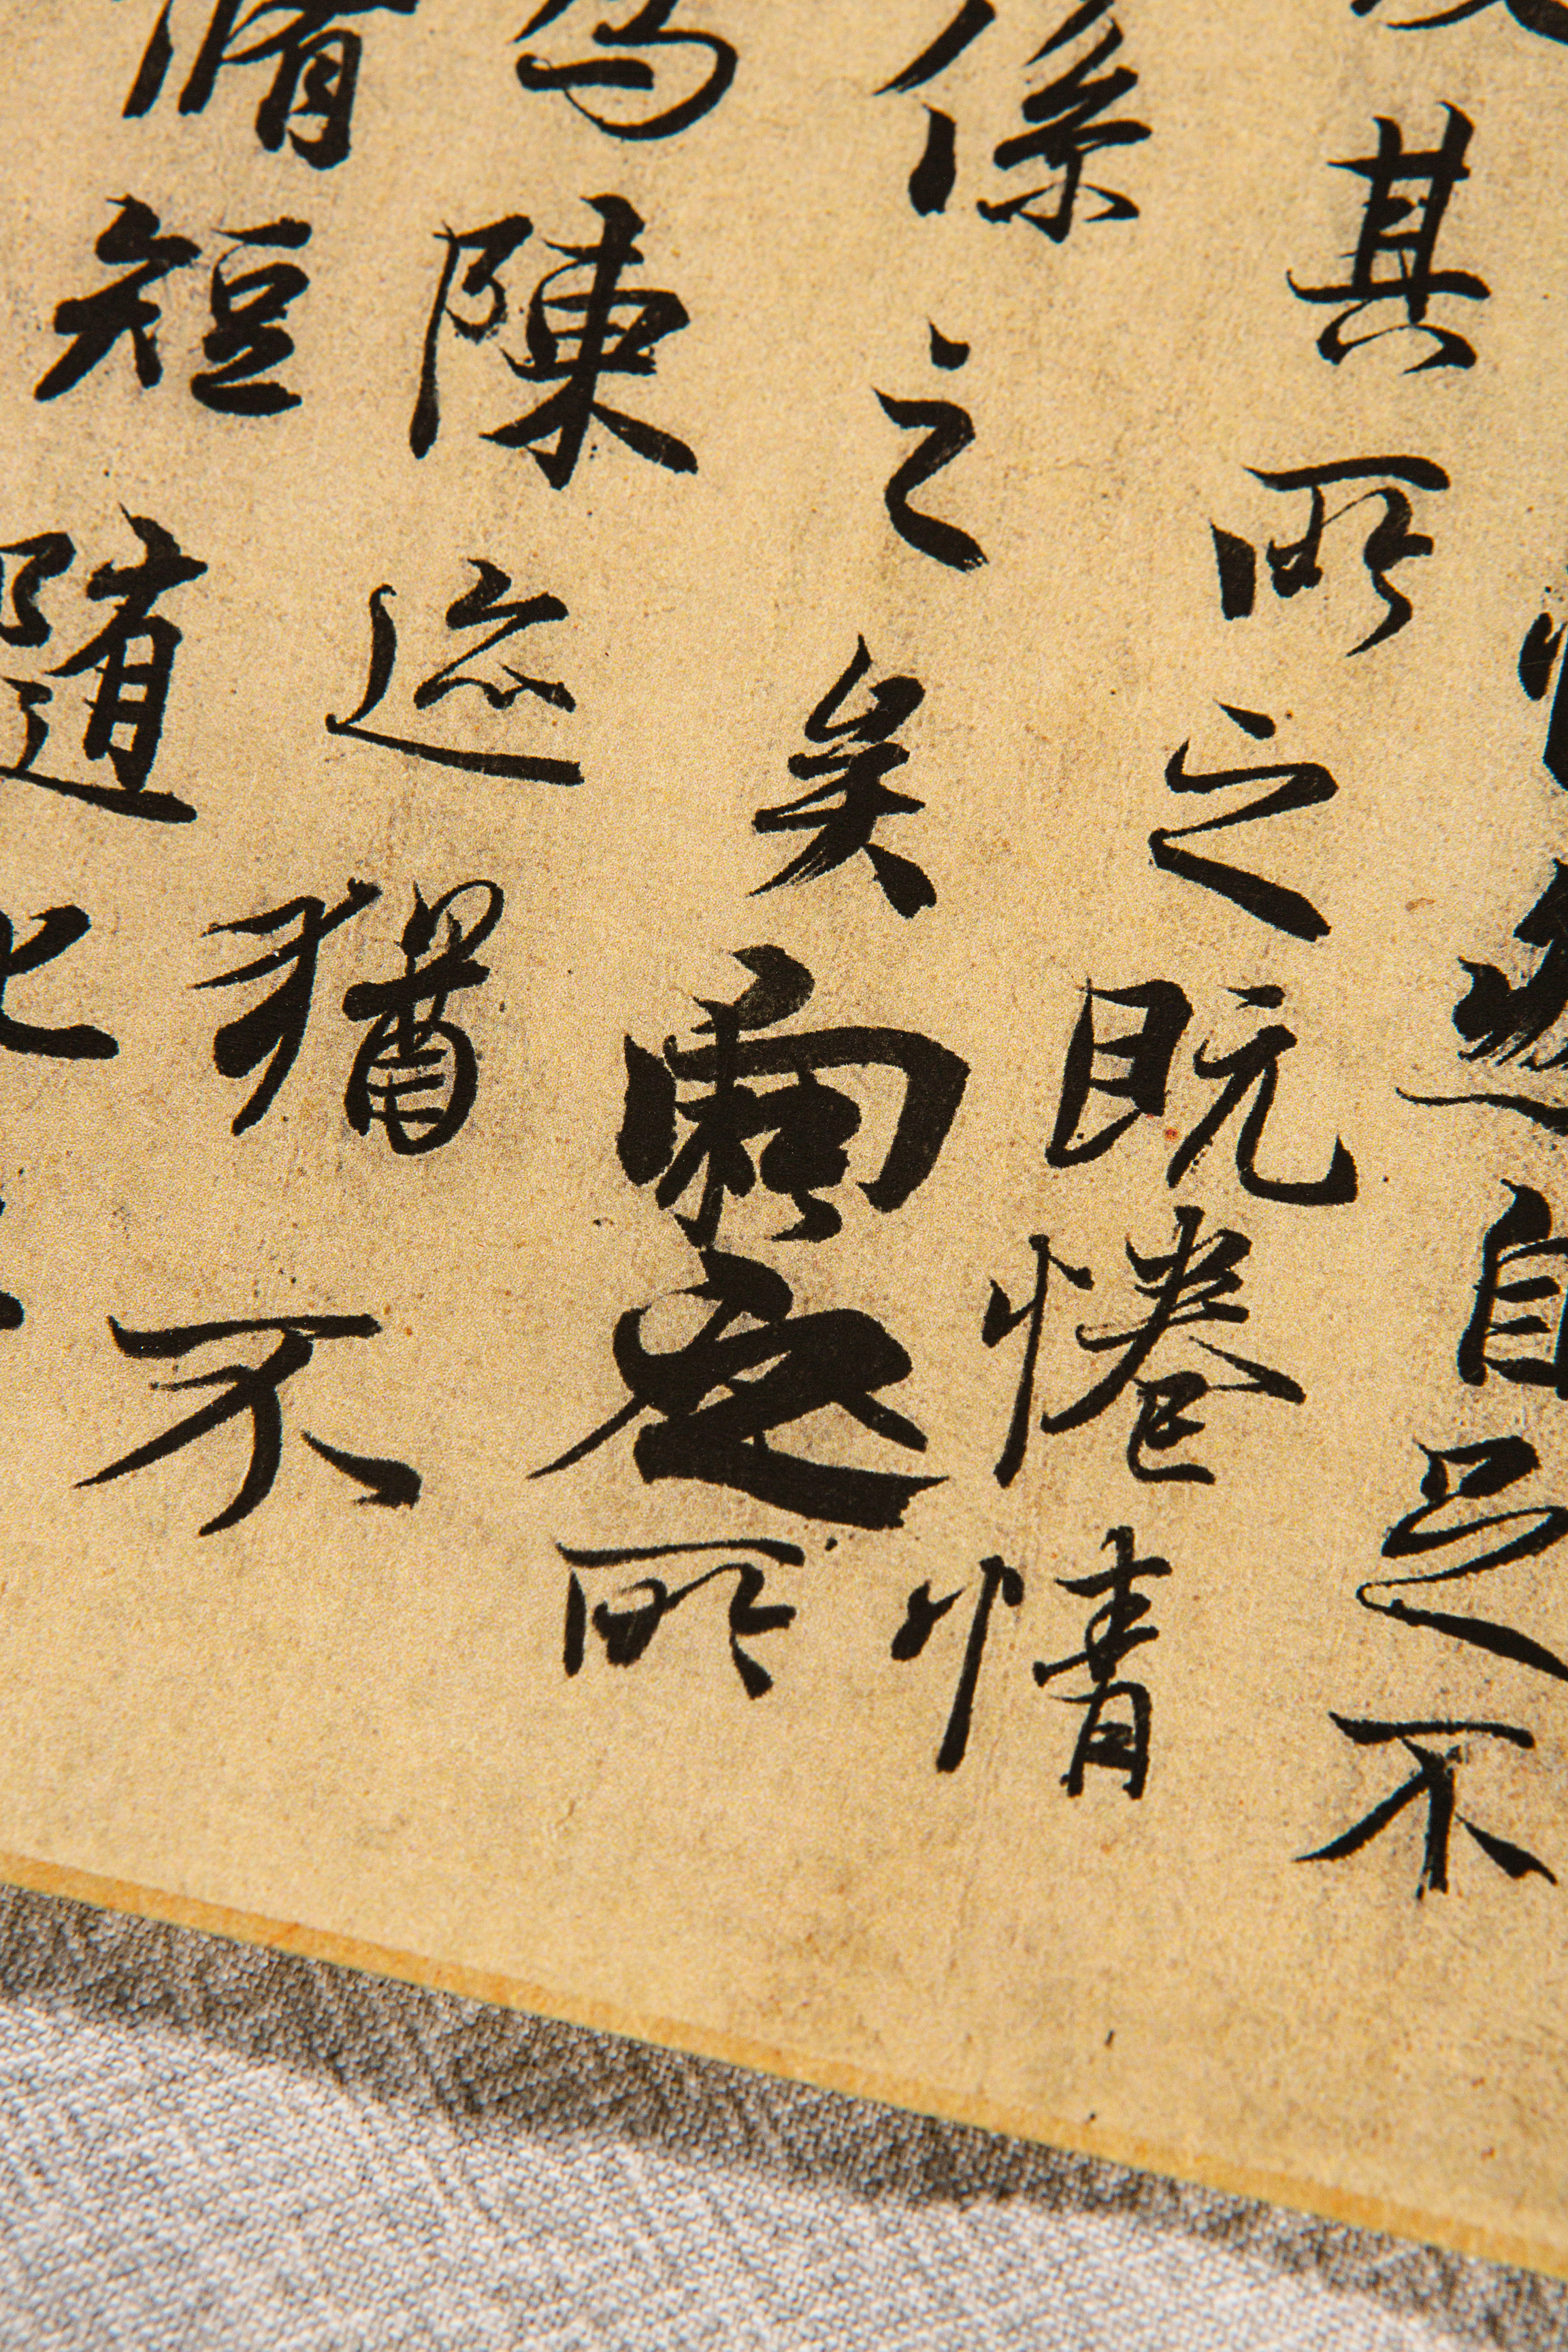 然自足不
其所之既惓情
係之矣向之所
為陳迹猶不
脩短隨化